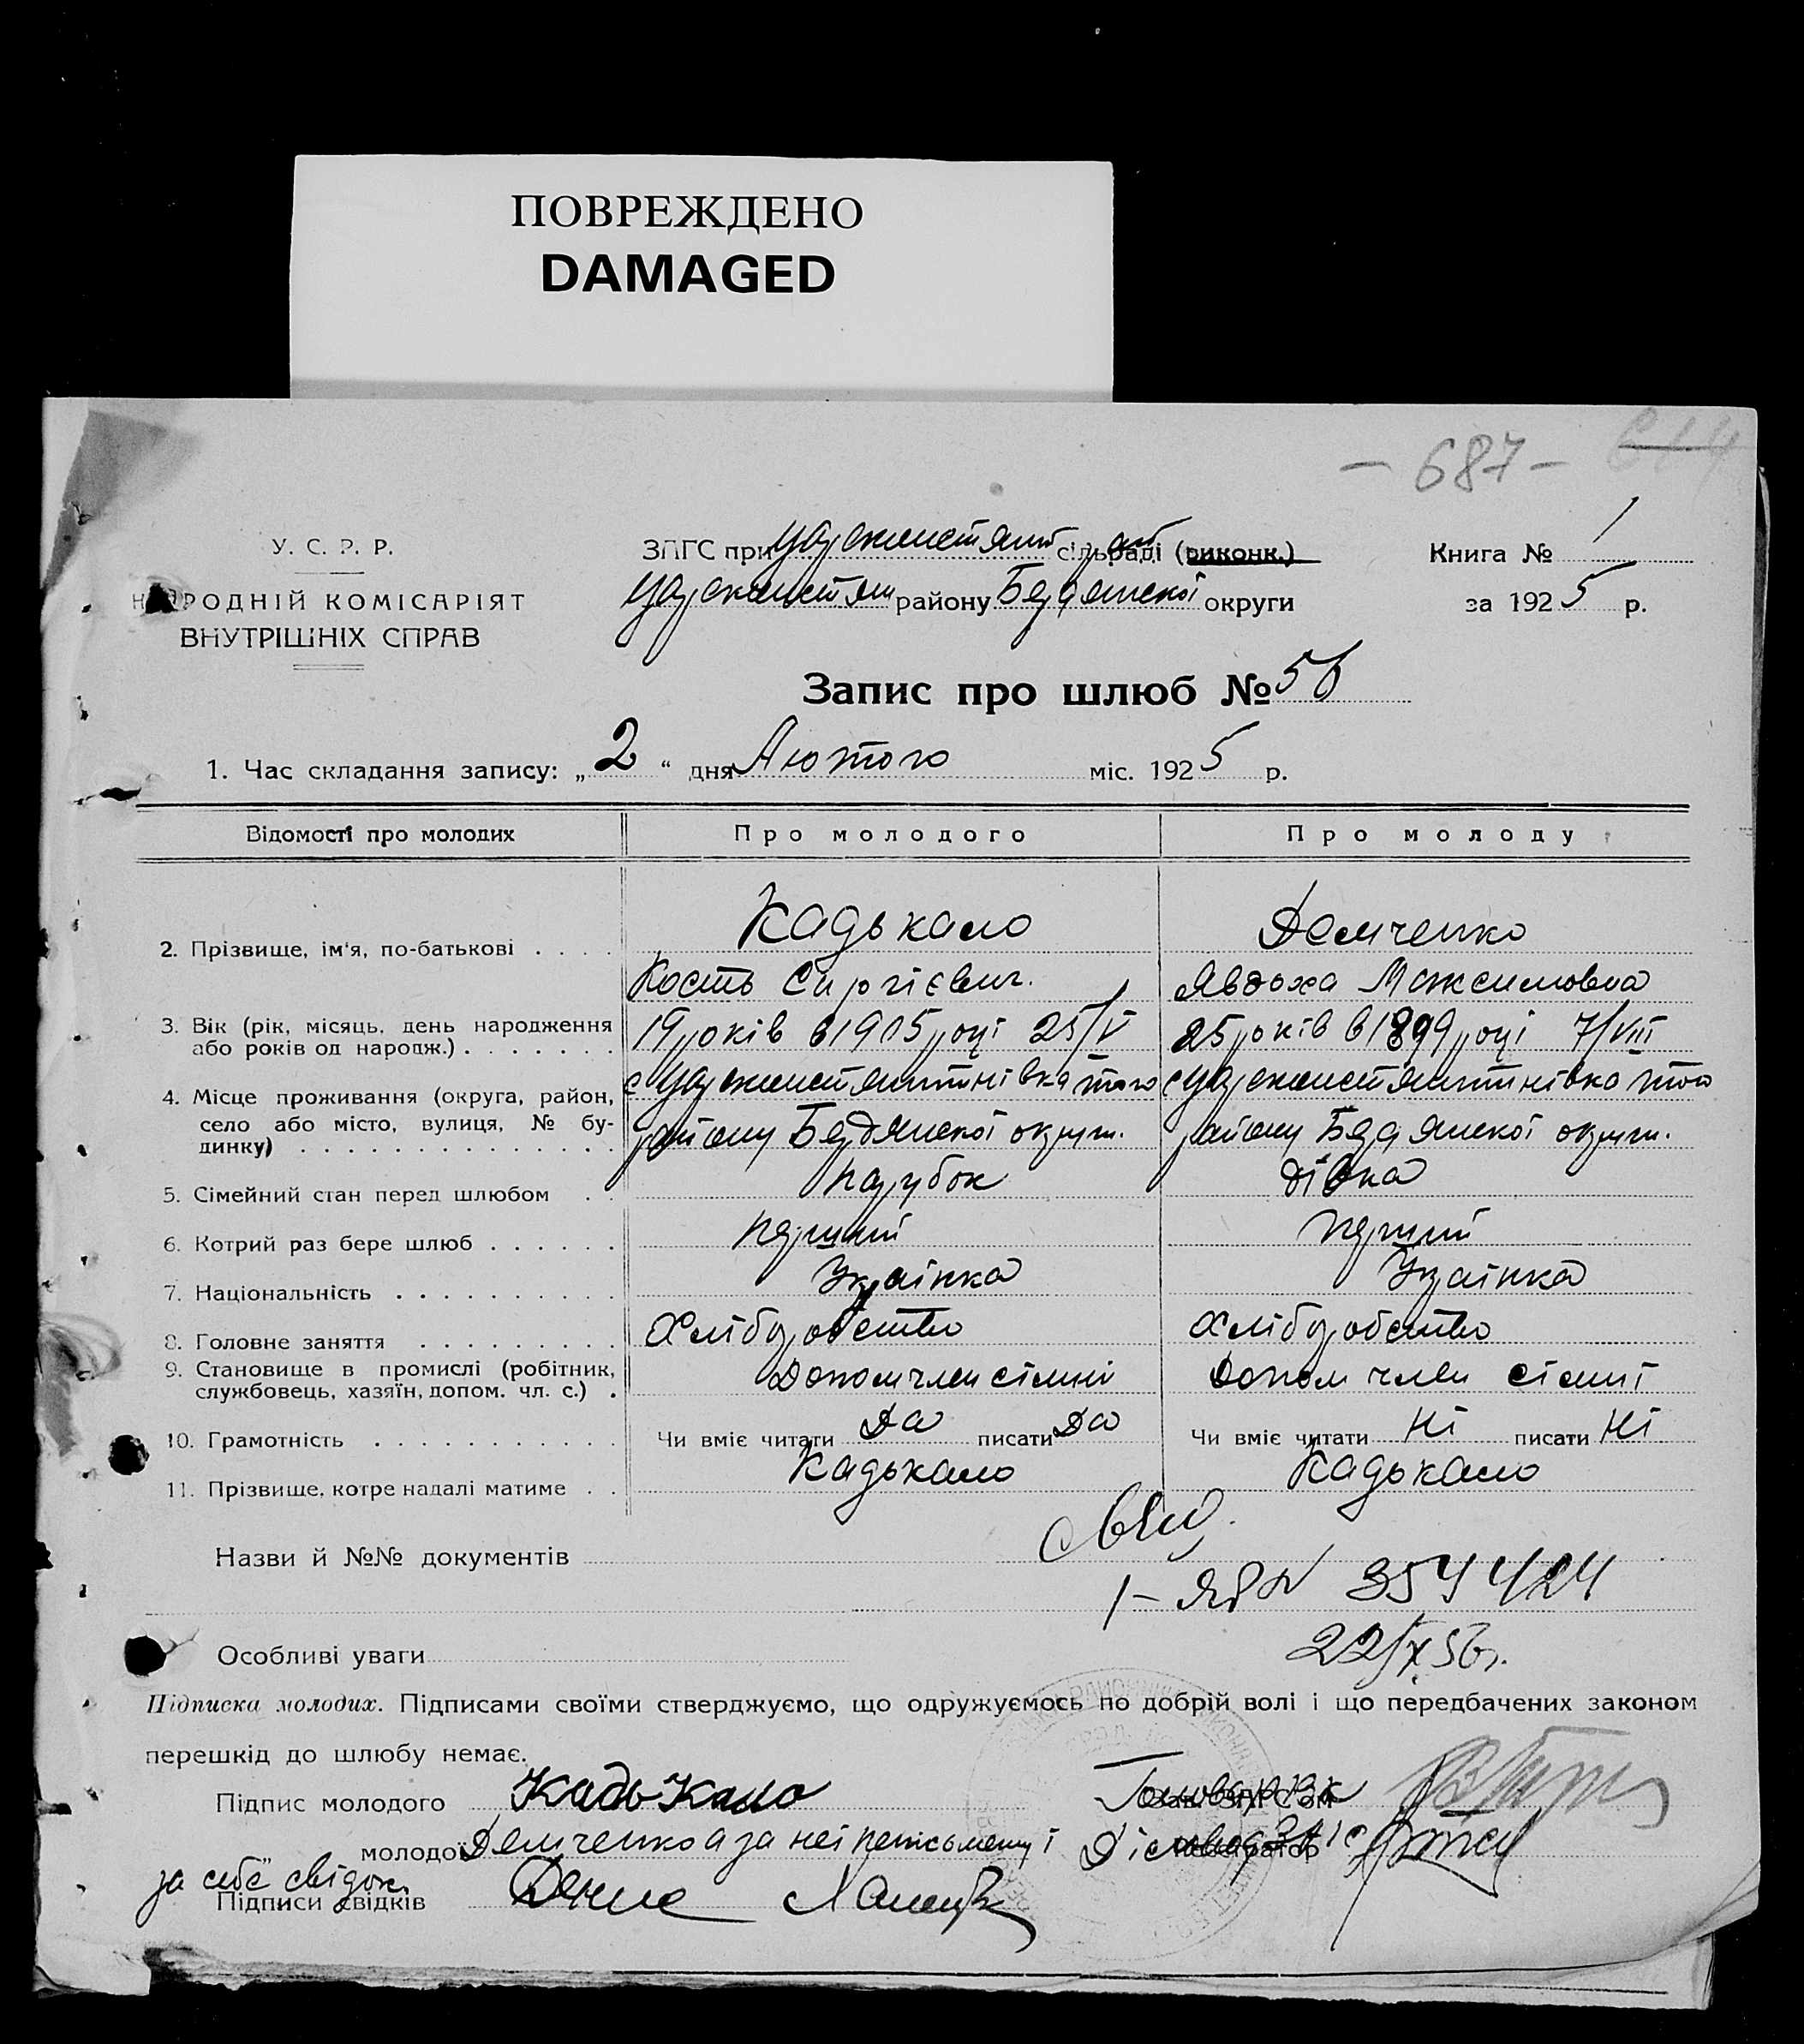 ПОВРЕЖДЕНО
DAMAGED
- 687 -
У. С. Р. Р.
НАРОДНІЙ КОМІСАРІЯТ
ВНУТРІШНІХ СПРАВ
ЗАГС при Цареконстянт сільраді (риконк.)
Цареконстян району Бердянської округи
Книга № 1
за 1925 р.
Запис про шлюб № 56
1. Час складання запису: „2“ дня Лютого міс. 1925 р.
Відомості про молодих
Про молодого
Про молоду
2. Прізвище, ім'я, по-батькові . . . .
Кадькало
Демченко
Кость Сиргієвич.
Явдоха Максимовна
3. Вік (рік, місяць, день народження
або років од нароdж.) . . . . . . .
19 років в 1905 році 25/V
25 років в 1899 році 7/VIII
4. Місце проживання (округа, район,
село або місто, вулиця, № бу-
динку) . . . . . . . . . . . . . .
с Цареконстянтинівка того
району Бердянської округи.
с Цареконстянтинівка того
району Бердянської округи.
5. Сімейний стан перед шлюбом . .
парубок
дівка
6. Котрий раз бере шлюб . . . . . .
перший
перший
7. Національність . . . . . . . . . .
Українка
Українка
8. Головне заняття . . . . . . . . .
Хліборобство
Хліборобство
9. Становище в промислі (робітник,
службовець, хазяїн, допом. чл. с.) .
Допом член сімни
Допом член сімнї
10. Грамотність . . . . . . . . . . .
Чи вміє читати Да писати Да
Чи вміє читати Ні писати Ні
11. Прізвище, котре надалі матиме . .
Кадькало
Кадькало
Назви й №№ документів
1 - ЯР N 354424
22/X 56г.
Особливі уваги
Підписка молодих. Підписами своїми стверджуємо, що одружуємось по добрій волі і що передбачених законом
перешкід до шлюбу немає.
Підпис молодого Кадькало
Зав. ЗАГС'ом
„ молодої Демченко а за неї неписьменну і
Діловод ЗАГС
за себе свідок
Підписи свідків